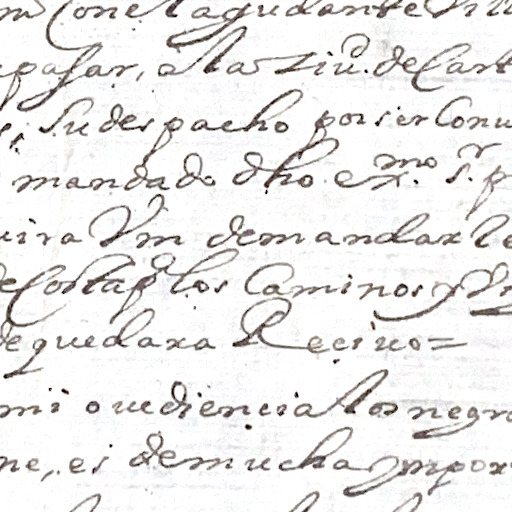 con el ayudante
pasar, a la Ziud. de Cart
Su despacho por ser Conu
mandado dho ex.mo S.r p
Vm demandarle
de Costa p.a los Caminos y
de quedara Reciuo =
mi ouediencia los negro
ne, es de mucha ympor